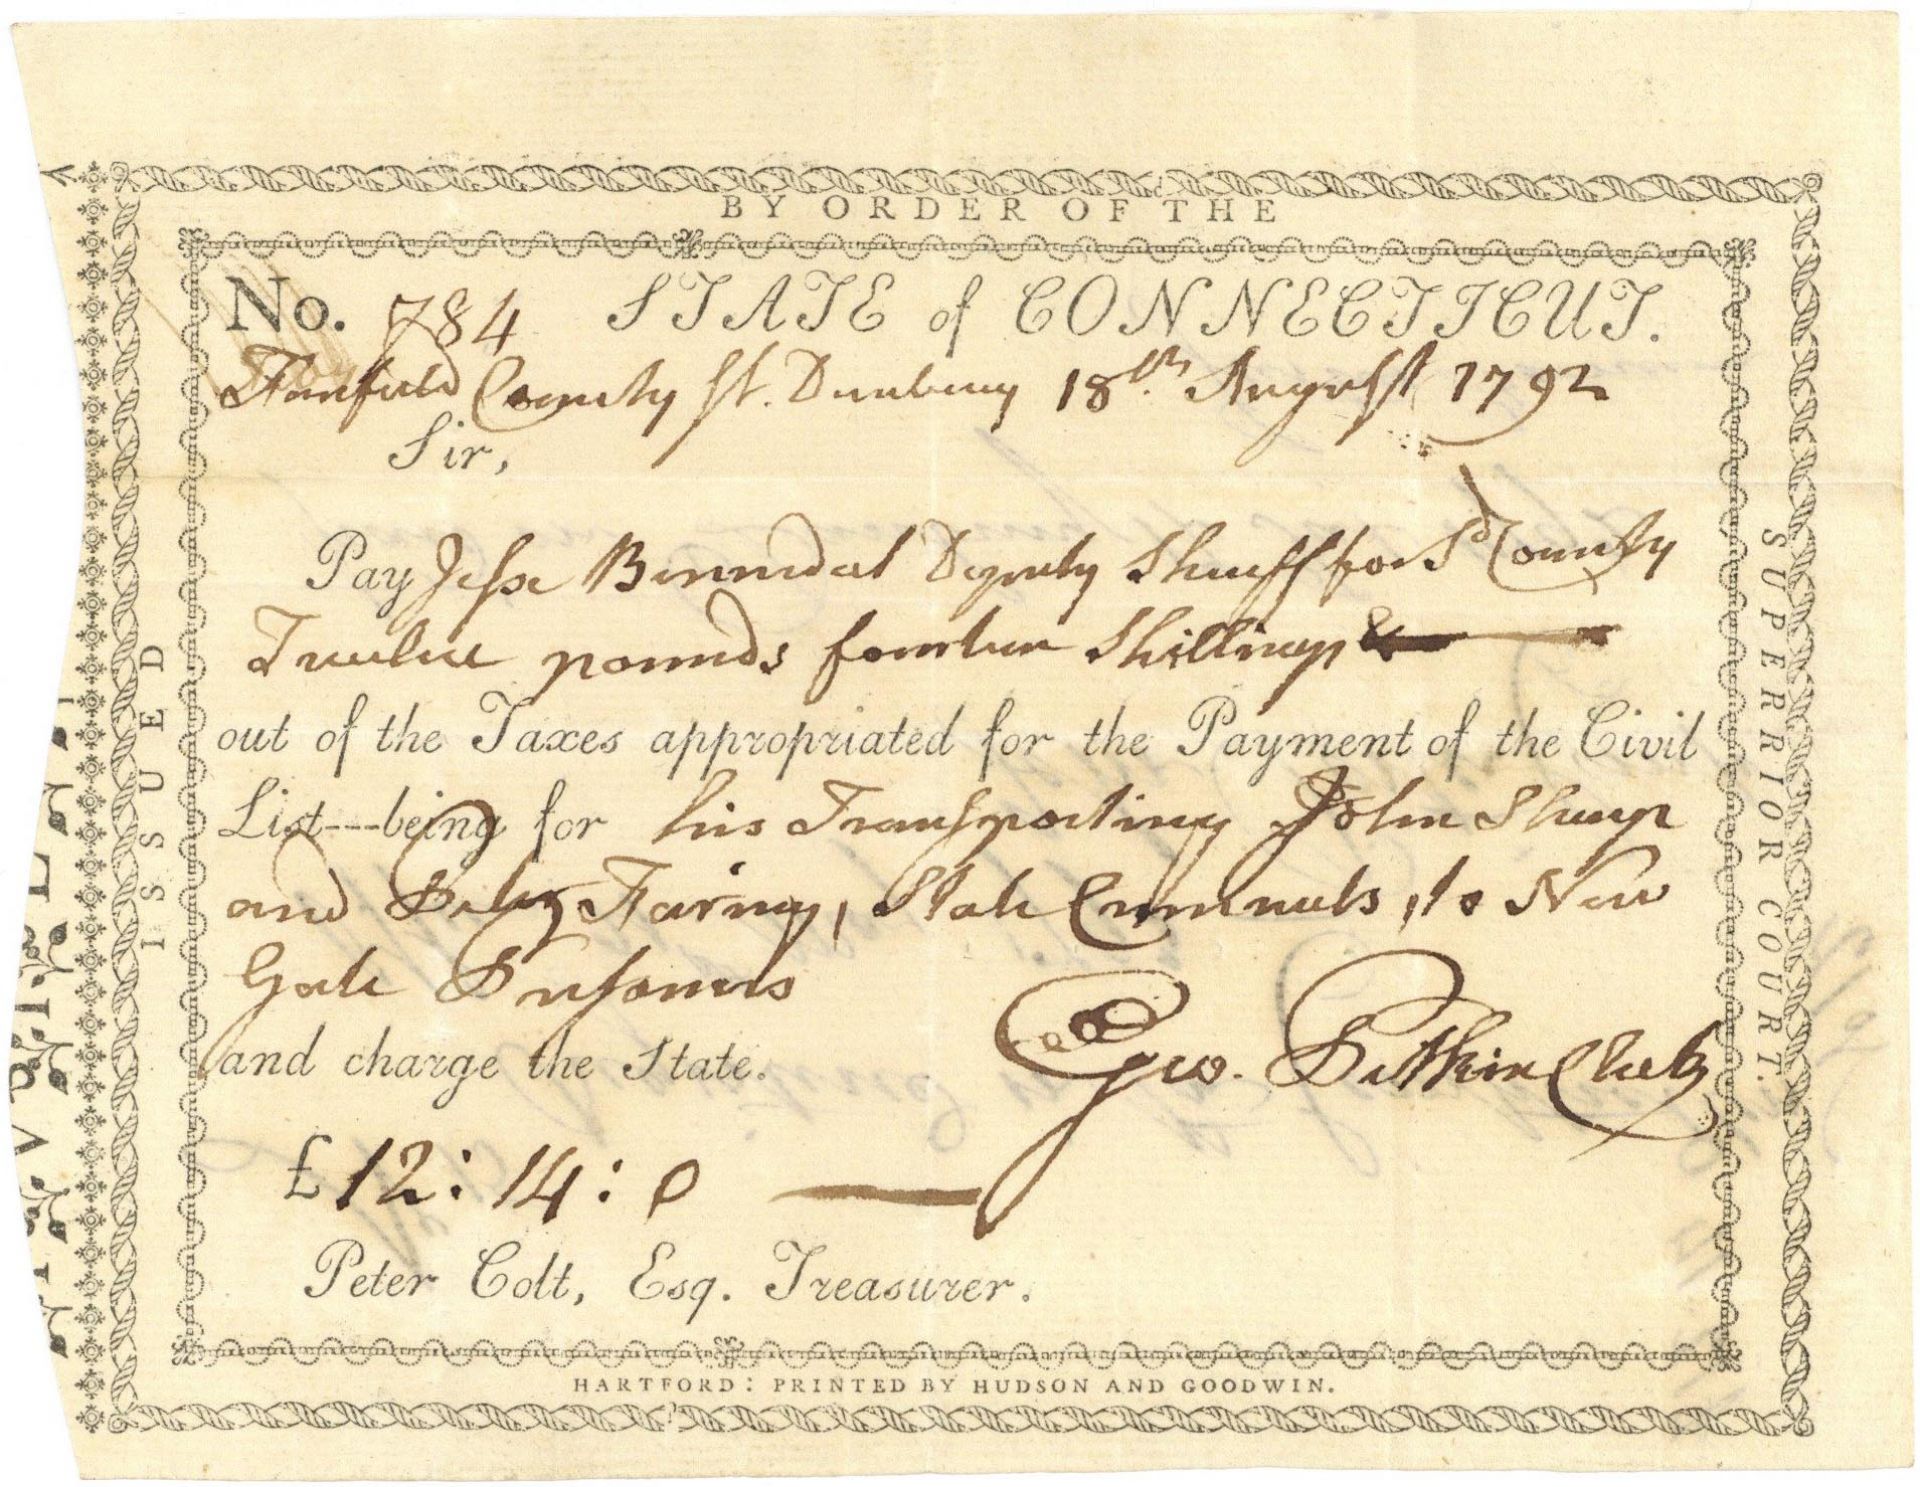 BY ORDER OF THE
No. 784 STATE of CONNECTICUT.
Fairfield County ss. Danbury 18th. August 1792
Sir,
Pay Jesse Bennedict Deputy Sheriff for Sd County
Twelve pounds fourteen Shillings
out of the Taxes appropriated for the Payment of the Civil
List---being for his Transporting John Sharp
and Fairing, State Criminals, to New
Gate Prisoners
and charge the State. Geo. Pitkin Clerk
£12:14:0
Peter Colt, Esq. Treasurer.
HARTFORD: PRINTED BY HUDSON AND GOODWIN.
ISSUED
SUPERIOR COURT.